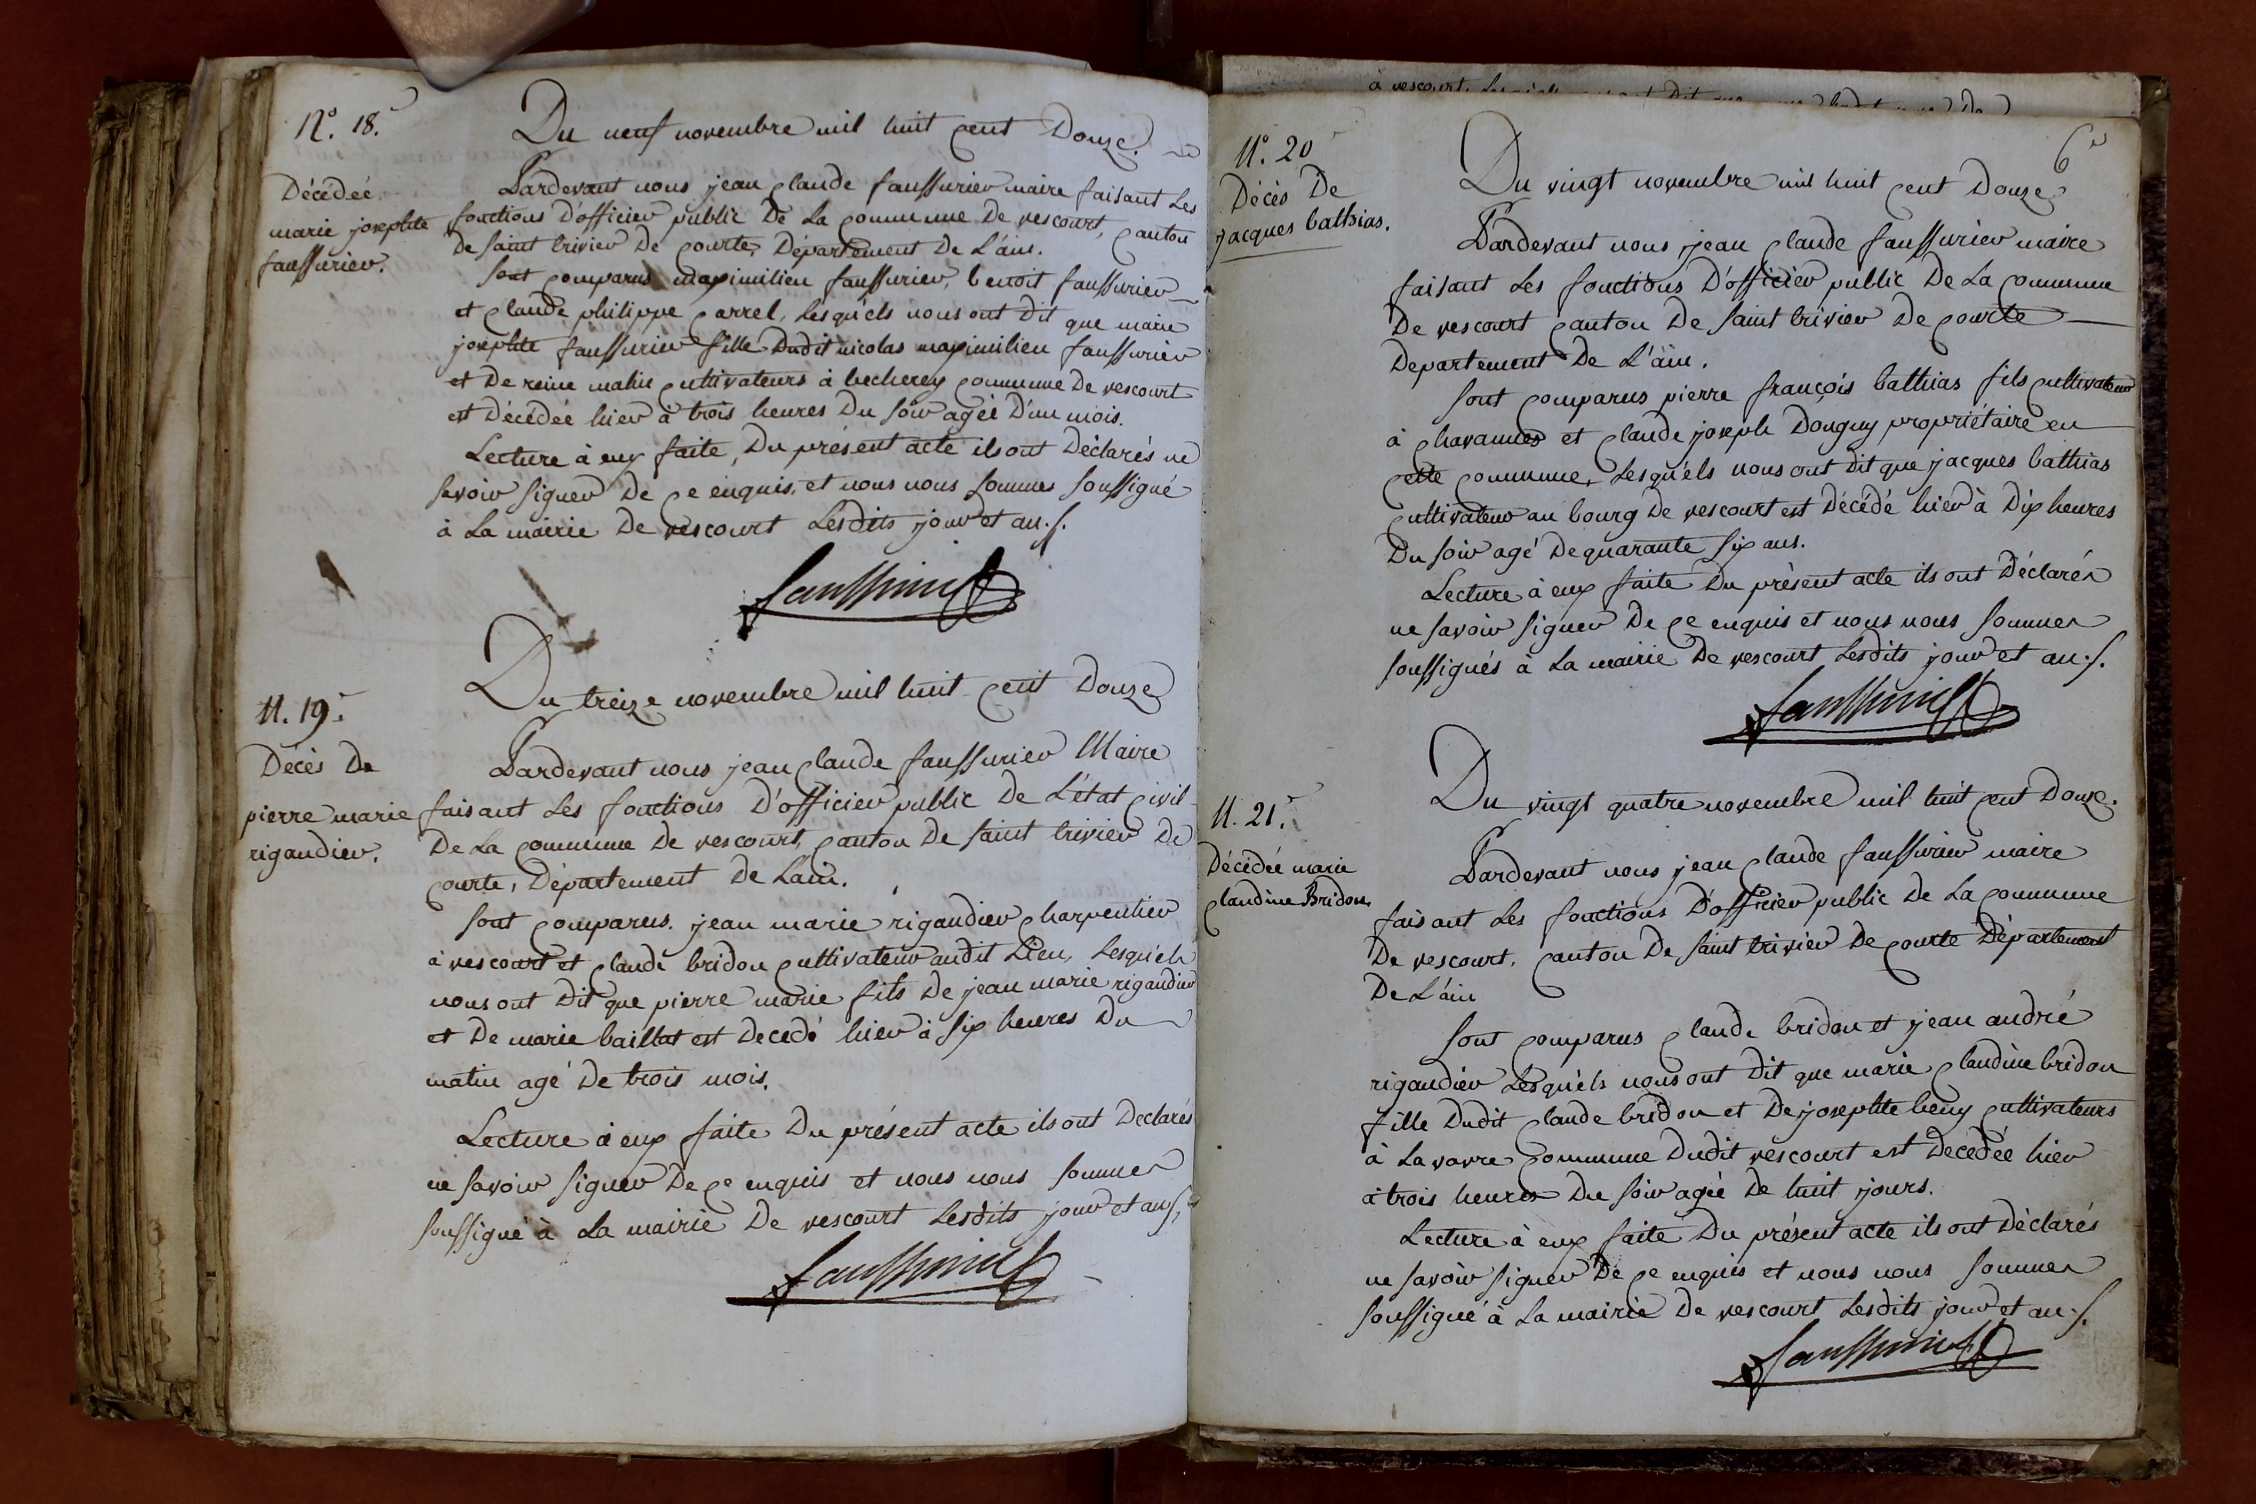 N.° 18.
Décédée
marie josephte
faussurier.
Du neuf novembre mil huit cent Douze.
Pardevant nous jean claude faussurier maire faisant Les
fonctions D'officier public De La commune De vescourt, canton
de saint trivier De courte, Département De L'ain.
Sont comparus maximilien faussurier, benoit faussurier
et claude philippe carrel, Lesquéls nous ont dit que marie
josephte faussurier fille Dudit nicolas maximilien faussurier
et De reine mahu cultivateurs à becherey commune De vescourt
est Décédée hier à trois heures Du soir agée D'un mois.
Lecture à eux faite, Du présent acte ils ont Déclarés ne
savoir signer De ce enquis, et nous nous sommes soussigné
à La mairie De vescourt Lesdits jour et an./.
faussurier
N. 19.
Décès De
pierre marie
rigaudier.
Du treize novembre mil huit cent Douze
Pardevant nous jean claude faussurier Maire
faisant Les fonctions D'officier public De L'état civil
De La commune De vescourt, canton De saint trivier De
courte, Département De L'ain.
Sont comparus. jean marie rigaudier charpentier
à vescourt et claude bridon cultivateur audit Lieu, Lesquéls
nous ont Dit que pierre marie fils De jean marie rigaudier
et De marie baillat est Decedé hier à six heures Du
matin agé De trois mois.
Lecture à eux faite Du présent acte ils ont Declarés
ne savoir signer De ce enquis et nous nous sommes
soussigné à La mairie De vescourt Lesdits jour et an./.
faussurier
6
N.° 20
Décès De
jacques bathias.
Du vingt novembre mil huit cent Douze
Pardevant nous jean claude faussurier maire
faisant Les fonctions D'officier public De La commune
De vescourt canton De saint trivier De courte
Departement De L'ain.
Sont comparus pierre françois bathias fils cultivateur
à chavannes et claude joseph Donguy propriétaire en
cette commune, Lesquéls nous ont dit que jacques bathias
cultivateur au bourg De vescourt est Décédé hier à Dix heures
Du soir agé De quarante six ans.
Lecture à eux faite Du présent acte ils ont Déclarés
ne savoir signer De ce enquis et nous nous sommes
soussignés à La mairie De vescourt Lesdits jour et an./.
faussurier
N. 21.
Décédée marie
claudine Bridon.
Du vingt quatre novembre mil huit cent Douze.
Pardevant nous jean claude faussurier maire
faisant Les fonctions D'officier public De La commune
De vescourt, canton De saint trivier De courte Département
De L'ain
Sont comparus claude bridon et jean andré
rigaudier Lesquéls nous ont dit que marie claudine bridon
fille Dudit claude bridon et De josephte beny cultivateurs
à La vavre commune Dudit vescourt est Decedée hier
à trois heures Du soir agée De huit jours.
Lecture à eux faite Du présent acte ils ont Déclarés
ne savoir signer De ce enquis et nous nous sommes
soussigné à La mairie De vescourt Lesdits jour et an./.
faussurier